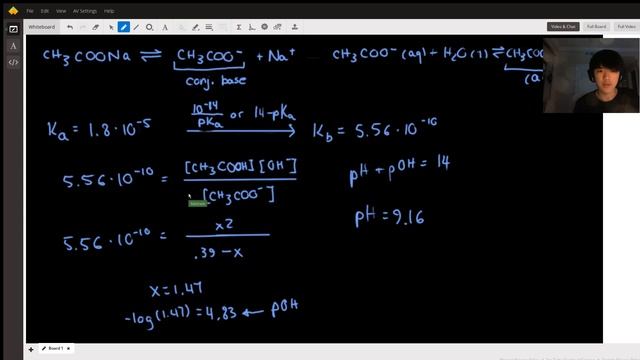 AV View Edit Format Settings Help
Whiteboard
Video & Chat Full Board Video
CH3COONa ⇌ CH3COO⁻ + Na⁺
conj. base
CH3COO⁻ (aq) + H2O (l) ⇌ CH3COO
(a
Ka = 1.8 · 10⁻⁵
10⁻¹⁴/pKa or 14-pKa
Kb = 5.56 · 10⁻¹⁰
5.56 · 10⁻¹⁰ = [CH3COOH][OH⁻] / [CH3COO⁻]
pH + pOH = 14
5.56 · 10⁻¹⁰ = x2 / .39 - x
pH = 9.16
x = 1.47
-log(1.47) = 4.83 ← pOH
Board 1